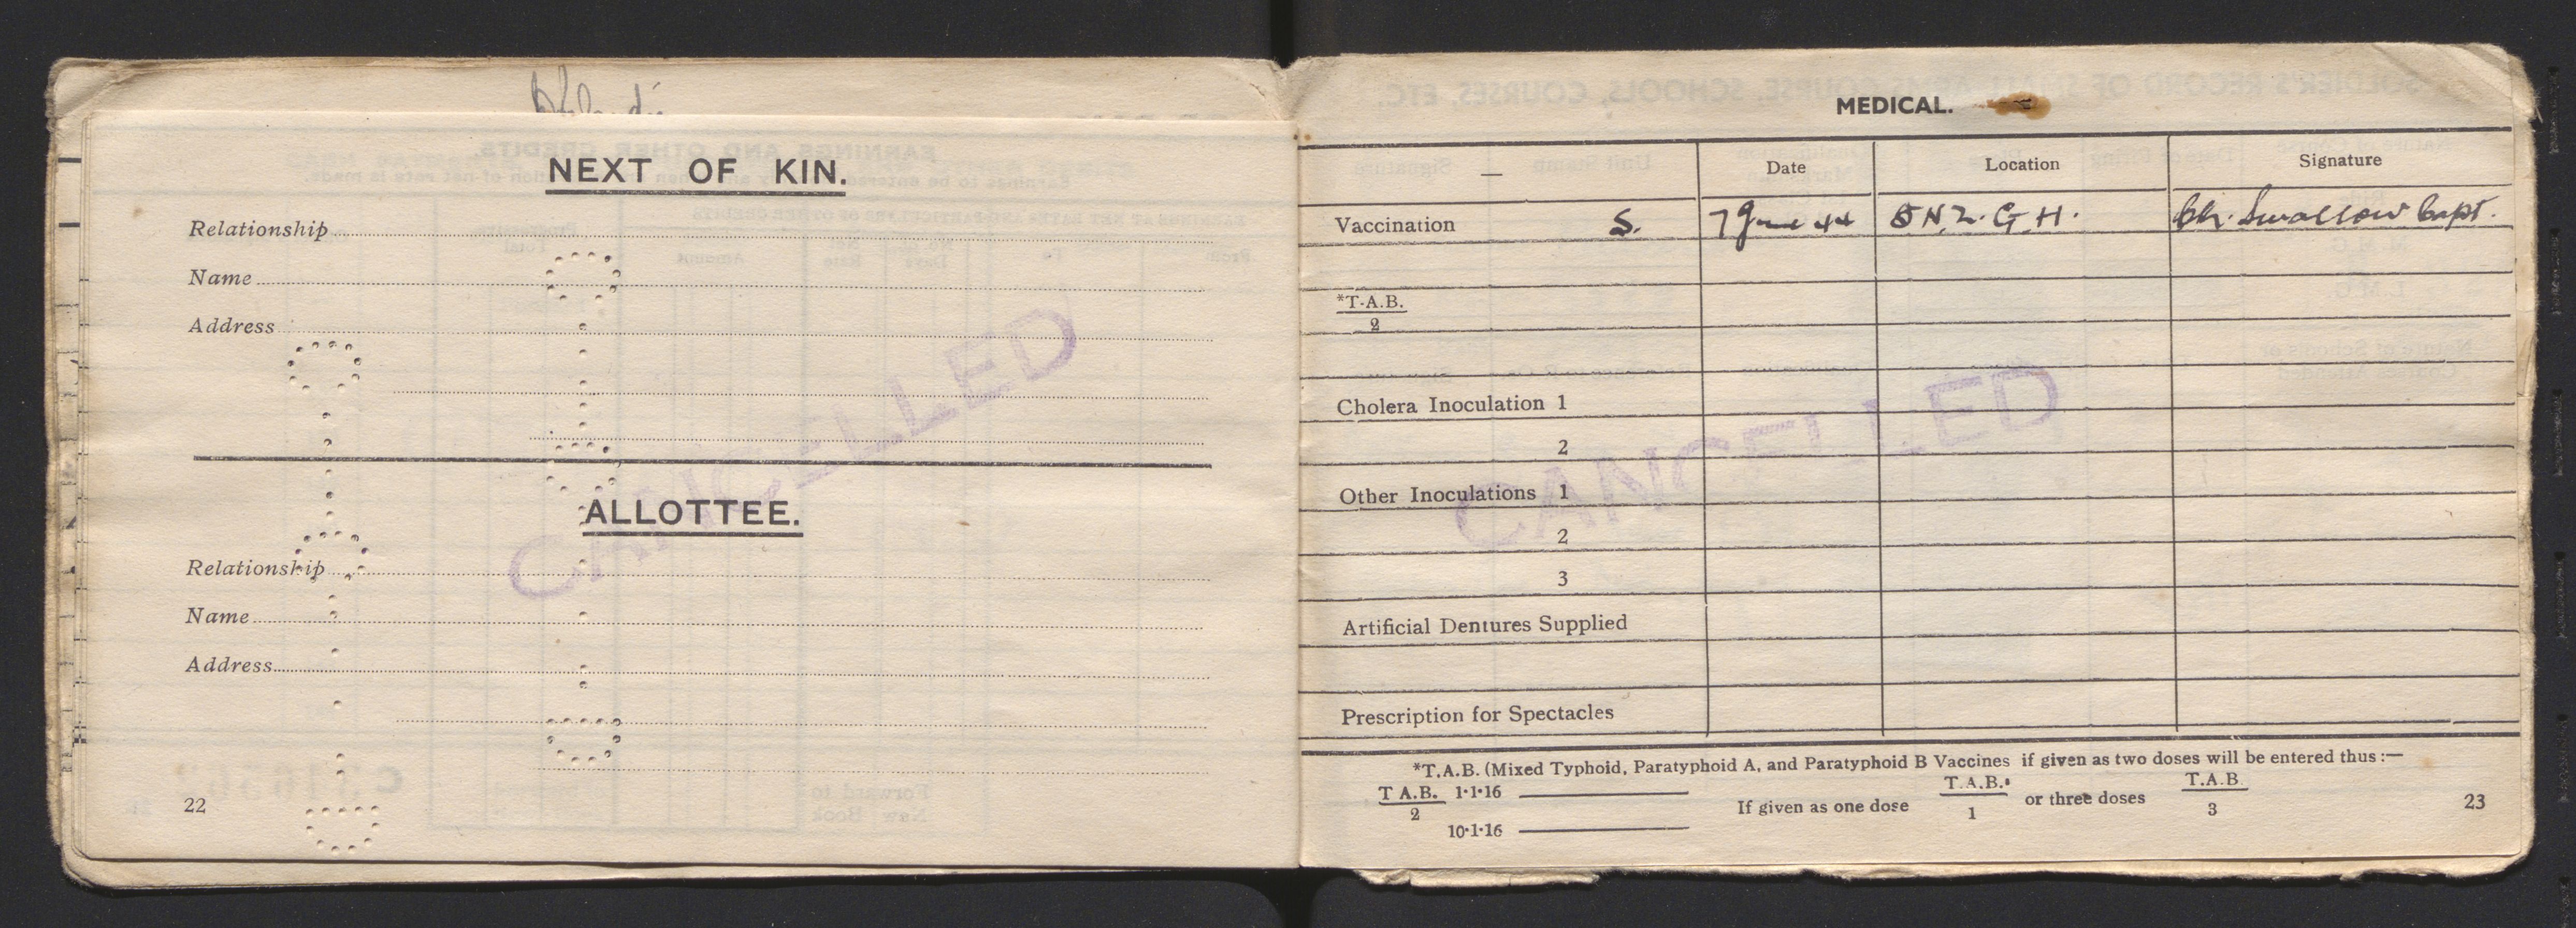 NEXT OF KIN.
Relationship
Name
Address
CANCELLED
ALLOTTEE.
Relationship
Name
Address
22
MEDICAL.
— Date Location Signature
Vaccination S. 7 June 44 5 N.Z.G.H. Ch. Swallow Capt.
*T.A.B.
2
Cholera Inoculation 1
2
CANCELLED
Other Inoculations 1
2
3
Artificial Dentures Supplied
Prescription for Spectacles
*T.A.B. (Mixed Typhoid, Paratyphoid A, and Paratyphoid B Vaccines if given as two doses will be entered thus :—
T A.B. 1·1·16 If given as one dose T.A.B. or three doses T.A.B.
2 1 3
10·1·16
23